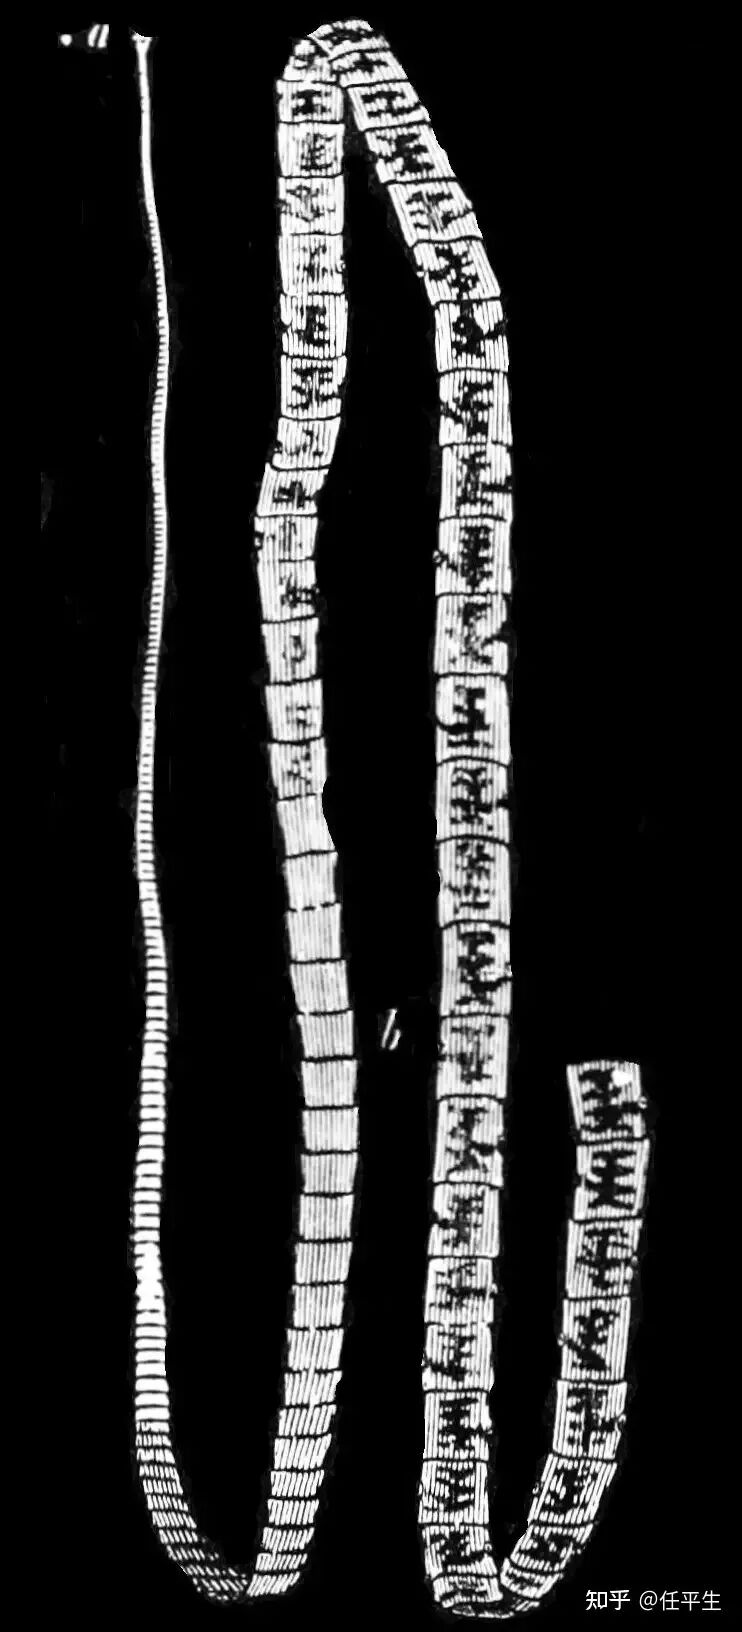 a
b
知乎 @任平生